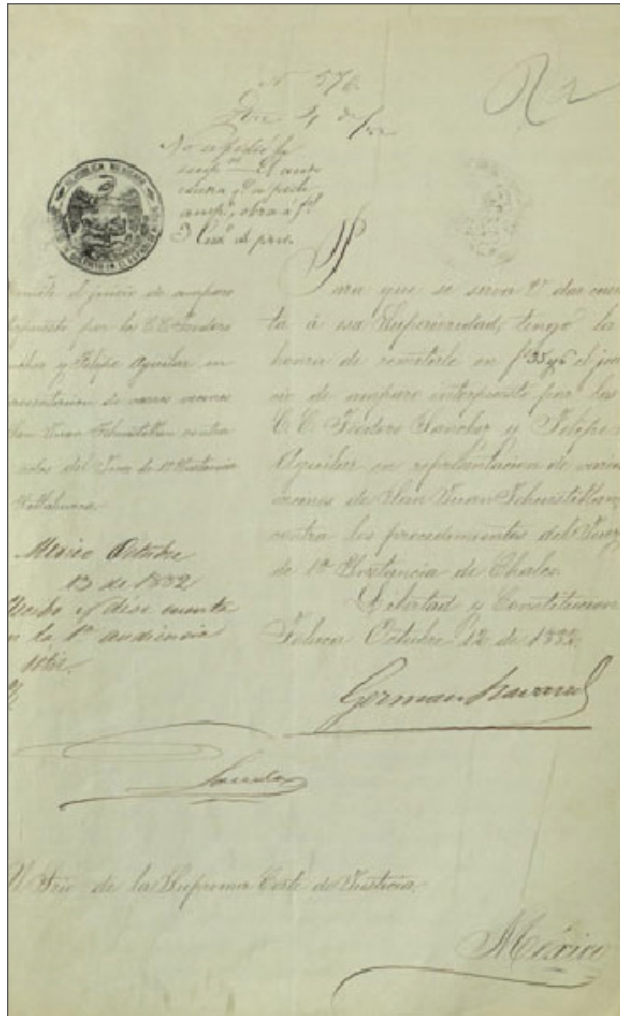 N 576
R 2
No se pidió la
3 Cuad. al pral.
REPUBLICA MEXICANA
Remite el juicio de amparo
interpuesto por los C.C. Teodoro
Sanchez y Felipe Aguilar en
representacion de varios vecinos
San Juan contra
actos del Juez de 1ª Instancia
México Octubre
13 de 1882
Recibo y dése cuenta
en la 1ª audiencia
Para que se sirva V. dar cuen
ta á esa Superioridad, tengo la
honra de remitirle en f. 35 y 6 el jui
cio de amparo interpuesto por los
C.C. Teodoro Sanchez y Felipe
Aguilar en representacion de varios
vecinos de San Juan
contra los procedimientos del Juez
de 1ª Instancia de Chalco.
Libertad y Constitucion
Toluca Octubre 12 de 1882.
German Navarro
Srio de la Suprema Corte de Justicia.
México